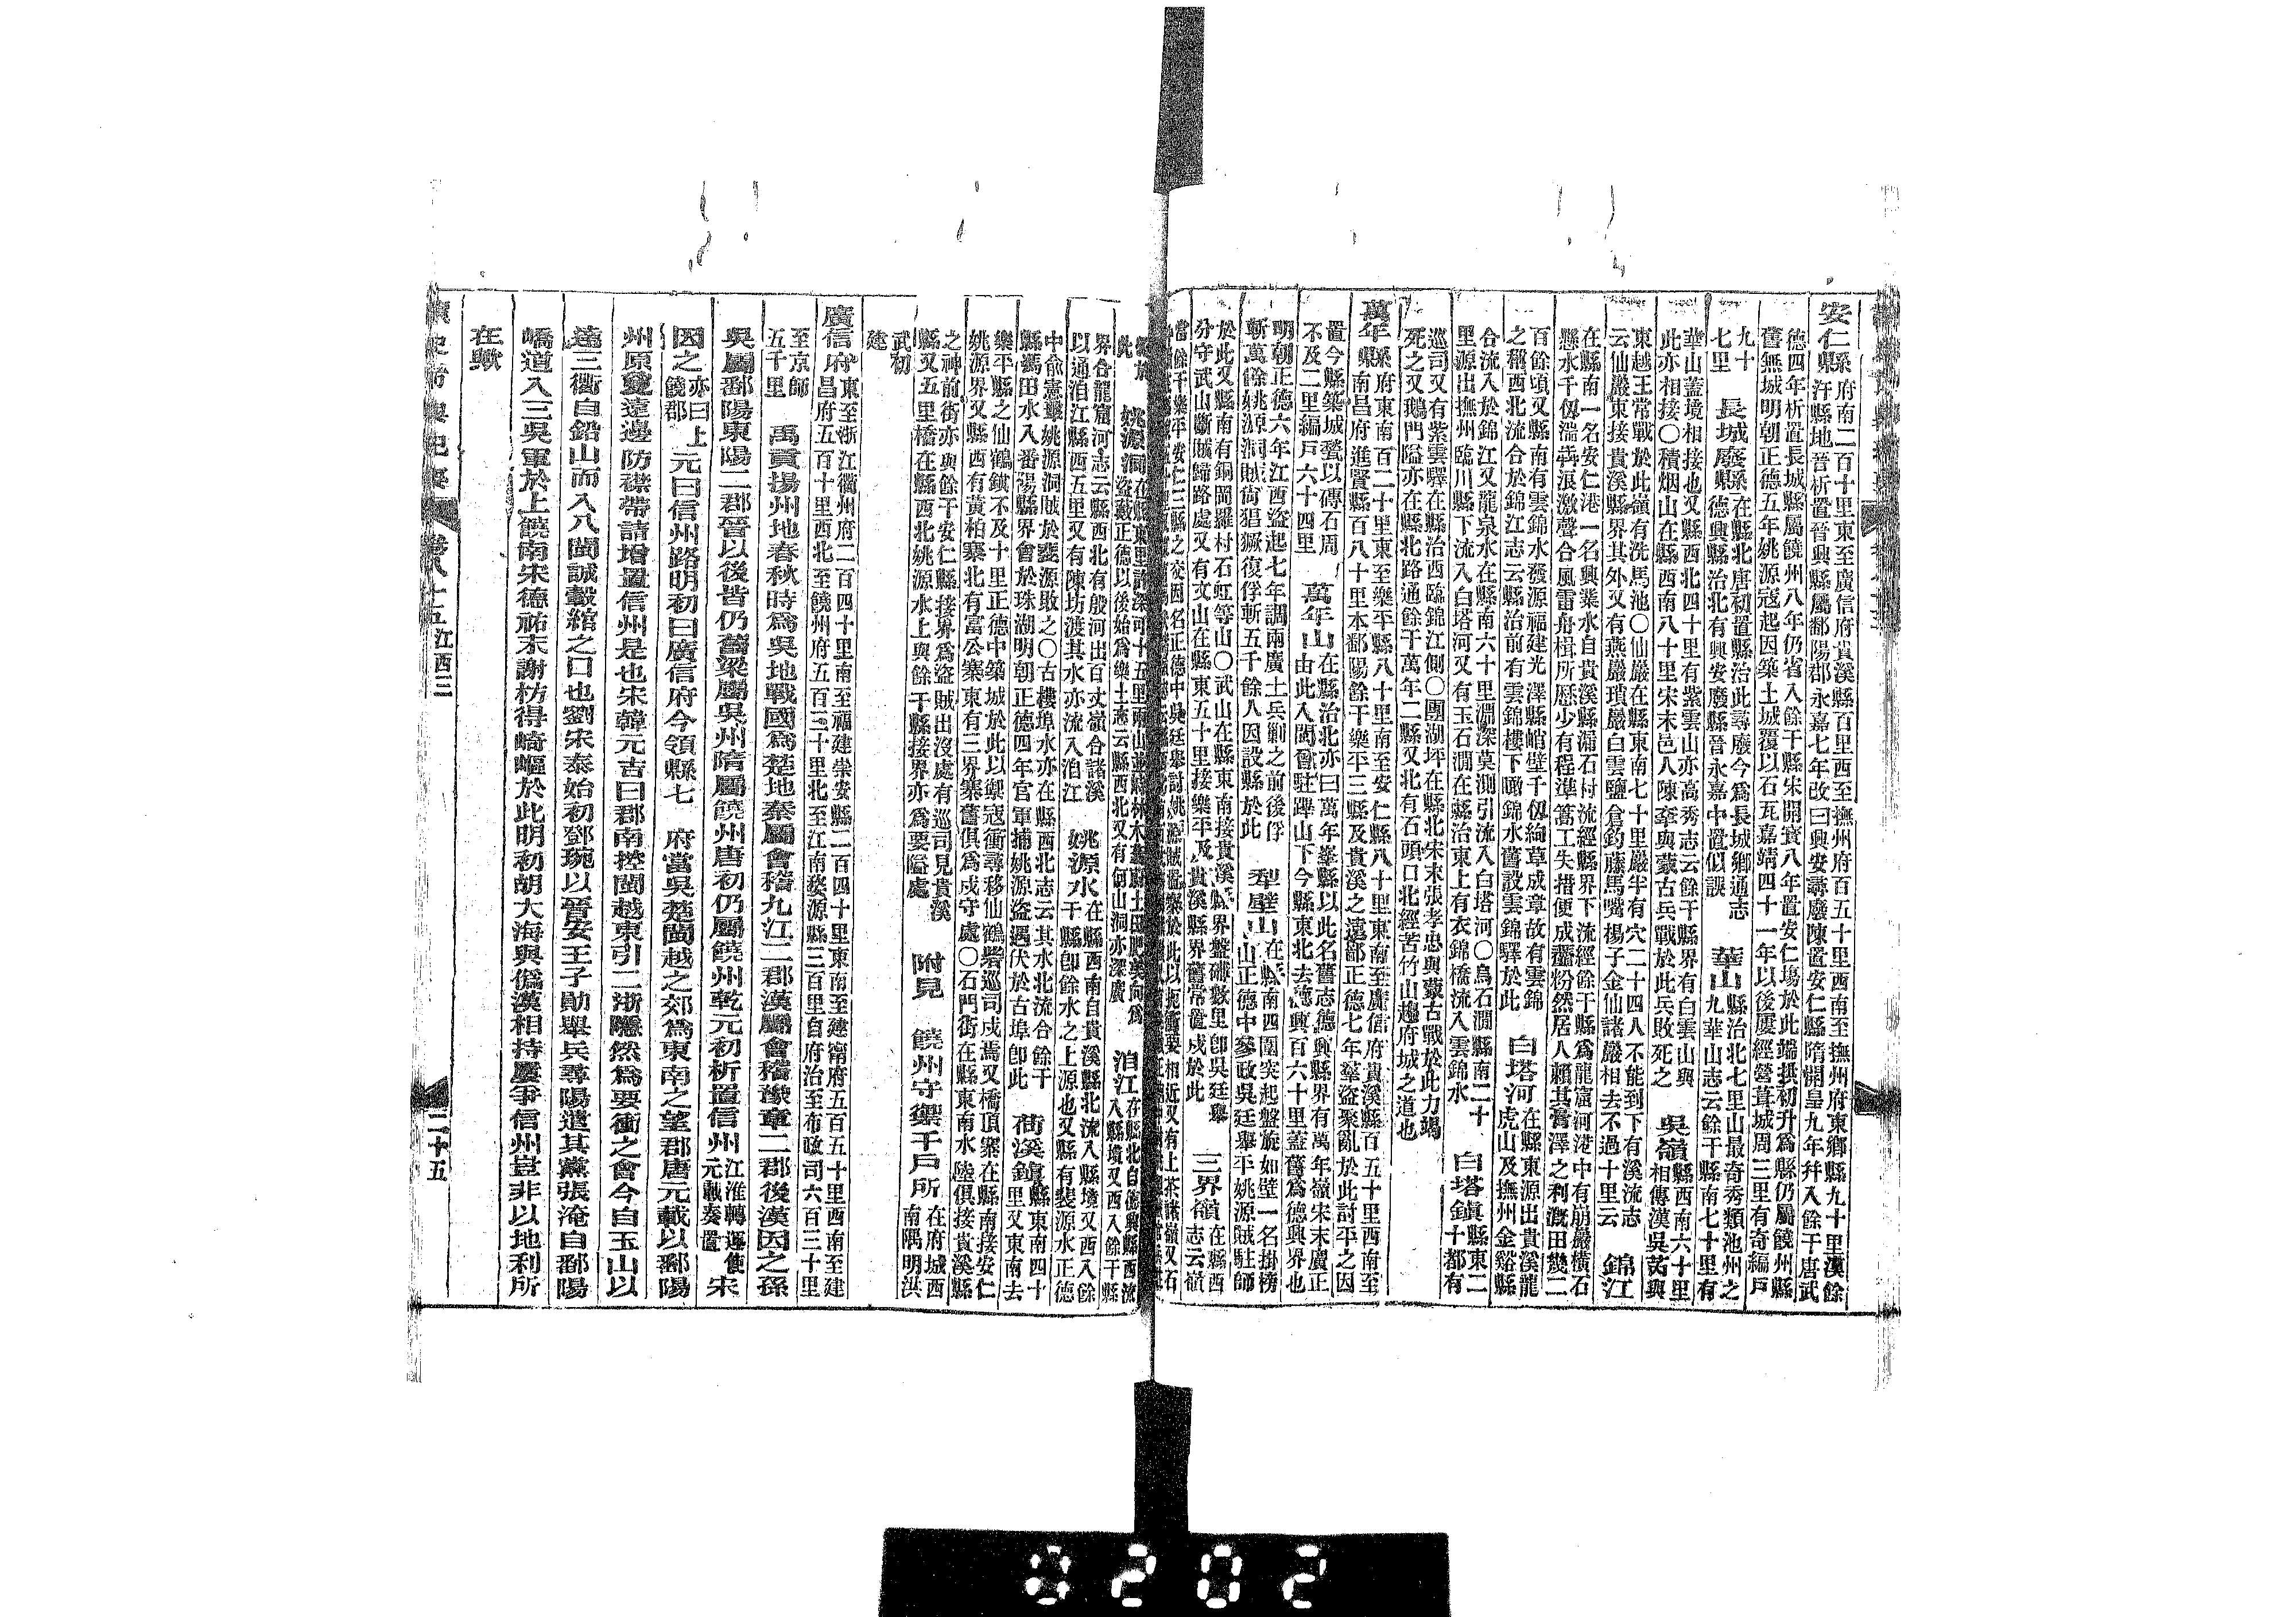 安仁縣府南二百十里東至廣信府貴溪縣百里西至撫州府百五十里西南至撫州府東鄉縣九十里漢餘
汗縣地晉析置晉興縣屬鄱陽郡永嘉七年改曰興安尋廢陳置安仁縣隋開皇九年幷入餘干唐武
德四年析置長城縣屬饒州八年仍省入餘干縣宋開寶八年置安仁塲於此端拱初升爲縣仍屬饒州縣
舊無城明朝正德五年姚源寇起因築土城覆以石瓦嘉靖四十一年以後屢經營葺城周三里有奇編戸
九十
七里
長城廢縣在縣北唐初置縣治此尋廢今爲長城鄉通志
德興縣治北有興安廢縣晉永嘉中置似誤
華山縣治北七里山最奇秀類池州之
九華山志云餘干縣南七十里有
華山蓋境相接也又縣西北四十里有紫雲山亦高秀志云餘干縣界有白雲山與
此亦相接〇積烟山在縣西南八十里宋末邑人陳羍與蒙古兵戰於此兵敗死之
吳嶺縣西南六十里
相傳漢吳芮與
東越王常戰於此嶺有洗馬池〇仙巖在縣東南七十里巖半有穴二十四人不能到下有溪流志
云仙巖東接貴溪縣界其外又有燕巖瑣巖白雲鹽倉釣藤馬嘴楊子金仙諸巖相去不過十里云
錦江
在縣南一名安仁港一名興業水自貴溪縣漏石村流經縣界下流經餘干縣爲龍窟河港中有崩巖橫石
懸水千仭湍犇浪激聲合風雷舟楫所歷少有程準篙工失措便成齏粉然居人賴其膏澤之利溉田幾二
百餘頃又縣南有雲錦水發源福建光澤縣峭壁千仭絢草成章故有雲錦
之稱西北流合於錦江志云縣治前有雲錦樓下瞰錦水舊設雲錦驛於此
白塔河在縣東源出貴溪龍
虎山及撫州金谿縣
合流入於錦江又龍泉水在縣南六十里淵深莫測引流入白塔河〇烏石澗縣南二十
里源出撫州臨川縣下流入白塔河又有玉石澗在縣治東上有衣錦橋流入雲錦水
白塔鎮縣東二
十都有
巡司又有紫雲驛在縣治西臨錦江側〇團湖坪在縣北宋末張孝忠與蒙古戰於此力竭
死之又鵝門隘亦在縣北路通餘干萬年二縣又北有石頭口北經苦竹山趨府城之道也
萬年縣府東南百二十里東至樂平縣八十里南至安仁縣八十里東南至廣信府貴溪縣百五十里西南至
南昌府進賢縣百八十里本鄱陽餘干樂平三縣及貴溪之遠鄙正德七年羣盜聚亂於此討平之因
置今縣築城甃以磚石周
不及二里編戸六十四里
萬年山在縣治北亦曰萬年峯縣以此名舊志德興縣界有萬年嶺宋末廣正
由此入閩曾駐蹕山下今縣東北去德興百六十里蓋舊爲德興界也
明朝正德六年江西盜起七年調兩廣土兵剿之前後俘
斬萬餘姚源洞賊尙猖獗復俘斬五千餘人因設縣於此
犁壁山在縣南四圍突起盤旋如壁一名掛榜
山正德中參政吳廷舉平姚源賊駐師
於此又縣南有銅岡羅村石虹等山〇武山在縣東南接貴溪縣界盤礴數里卽吳廷舉
分守武山斷賊歸路處又有文山在縣東五十里接樂平及貴溪縣界舊常置戍於此
三界嶺在縣西
志云嶺
姚源洞
界合龍窟河志云縣西北有殷河出百丈嶺合諸溪
以通泊江縣西五里又有陳坊渡其水亦流入泊江
姚源水在縣西南自貴溪縣北流入縣境又西入餘
干縣卽餘水之上源也又縣有裴源水正德
中俞憲擊姚源洞賊於裴源敗之〇古樓埠水亦在縣西北志云其水北流合餘干
縣馮田水入番湯縣界會於珠湖明朝正德四年官軍捕姚源盜遇伏於古埠卽此
荷溪鎮縣東南四十
里又東南去
樂平縣之仙鶴鎭不及十里正德中築城於此以禦寇衝尋移仙鶴砦巡司戍焉又橋頂寨在縣南接安仁
姚源界又縣西有黃柏寨北有富公寨東有三界寨舊俱爲戍守處〇石門街在縣東南水陸俱接貴溪縣
之神前街亦與餘干安仁縣接界爲盜賊出沒處有巡司見貴溪
縣又五里橋在縣西北姚源水上與餘干縣接界亦爲要隘處
附見
饒州守禦千戸所在府城西
南隅明洪
武初
建
廣信府東至浙江衢州府二百四十里南至福建崇安縣二百四十里東南至建甯府五百五十里西南至建
昌府五百十里西北至饒州府五百三十里北至江南婺源縣三百里自府治至布政司六百三十里
至京師
五千里
禹貢揚州地春秋時爲吳地戰國爲楚地秦屬會稽九江二郡漢屬會稽豫章二郡後漢因之孫
吳屬鄱陽東陽二郡晉以後皆仍舊梁屬吳州隋屬饒州唐初仍屬饒州乾元初析置信州江淮轉運使
元載奏置
宋
因之亦曰上
饒郡
元曰信州路明初曰廣信府今領縣七
府當吳楚閩越之郊爲東南之望郡唐元載以鄱陽
州原敻遠邊防襟帶請增置信州是也宋韓元吉曰郡南控閩越東引二浙隱然爲要衝之會今自玉山以
達三衢自鉛山而入八閩誠轂綰之口也劉宋泰始初鄧琬以晉安王子勛舉兵尋陽遣其黨張淹自鄱陽
嶠道入三吳軍於上饒南宋德祐末謝枋得崎嶇於此明初胡大海與僞漢相持屢爭信州豈非以地利所
在歟
讀史方輿紀要
卷八十五 江西三
二十五
0202